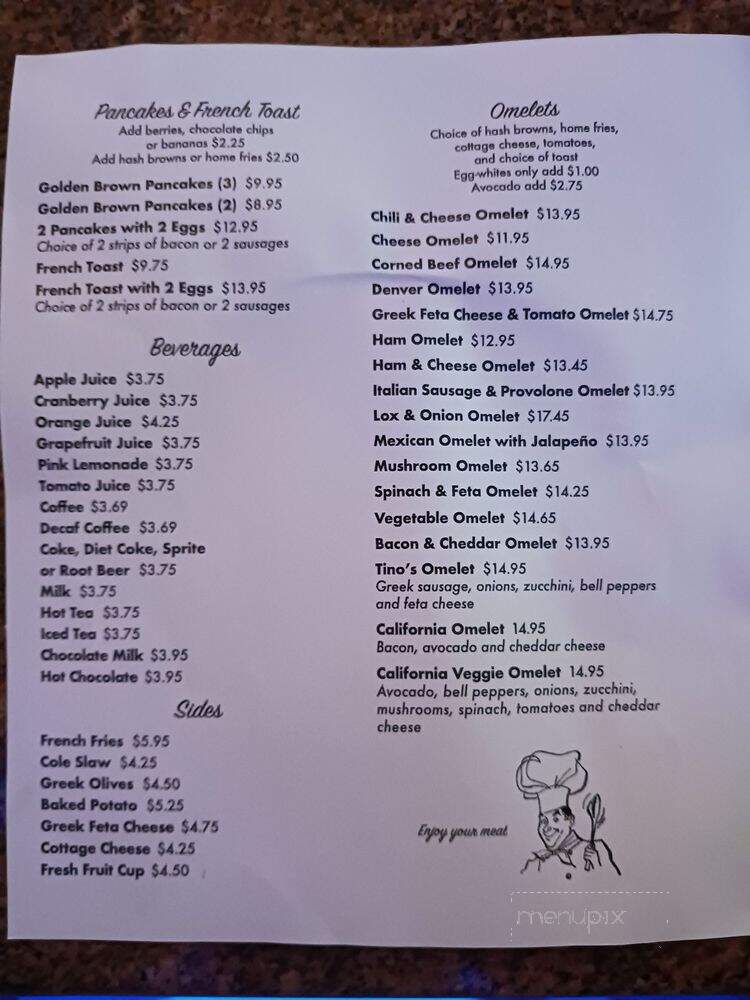 Pancakes & French Toast
Add berries, chocolate chips
or bananas $2.25
Add hash browns or home fries $2.50
Golden Brown Pancakes (3) $9.95
Golden Brown Pancakes (2) $8.95
2 Pancakes with 2 Eggs $12.95
Choice of 2 strips of bacon or 2 sausages
French Toast $9.75
French Toast with 2 Eggs $13.95
Choice of 2 strips of bacon or 2 sausages
Beverages
Apple Juice $3.75
Cranberry Juice $3.75
Orange Juice $4.25
Grapefruit Juice $3.75
Pink Lemonade $3.75
Tomato Juice $3.75
Coffee $3.69
Decaf Coffee $3.69
Coke, Diet Coke, Sprite
or Root Beer $3.75
Milk $3.75
Hot Tea $3.75
Iced Tea $3.75
Chocolate Milk $3.95
Hot Chocolate $3.95
Sides
French Fries $5.95
Cole Slaw $4.25
Greek Olives $4.50
Baked Potato $5.25
Greek Feta Cheese $4.75
Cottage Cheese $4.25
Fresh Fruit Cup $4.50
Omelets
Choice of hash browns, home fries,
cottage cheese, tomatoes,
and choice of toast
Egg-whites only add $1.00
Avocado add $2.75
Chili & Cheese Omelet $13.95
Cheese Omelet $11.95
Corned Beef Omelet $14.95
Denver Omelet $13.95
Greek Feta Cheese & Tomato Omelet $14.75
Ham Omelet $12.95
Ham & Cheese Omelet $13.45
Italian Sausage & Provolone Omelet $13.95
Lox & Onion Omelet $17.45
Mexican Omelet with Jalapeño $13.95
Mushroom Omelet $13.65
Spinach & Feta Omelet $14.25
Vegetable Omelet $14.65
Bacon & Cheddar Omelet $13.95
Tino's Omelet $14.95
Greek sausage, onions, zucchini, bell peppers
and feta cheese
California Omelet 14.95
Bacon, avocado and cheddar cheese
California Veggie Omelet 14.95
Avocado, bell peppers, onions, zucchini,
mushrooms, spinach, tomatoes and cheddar
cheese
Enjoy your meal
menupix